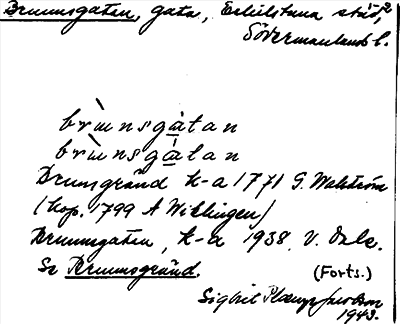 Brunnsgatan, gata, Eskilstuna stad,
Södermanlands l.
brùnsgàtan
brùnsgàtan
Brunsgränd k-a 1771 G. Walström
(kop. 1799 A Wiklingen)
Brunnsgatan, k-a 1938. V.
Se Brunnsgränd.
(Forts.)
Sigbrit Plaenge Jacobson
1943.